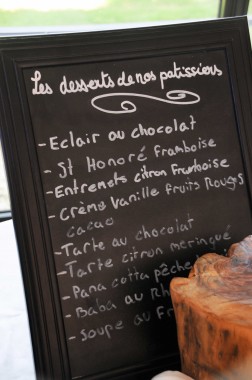 Les desserts de nos patissiers
- Eclair au chocolat
- St Honoré Framboise
- Entremets citron Framboise
- Crème Vanille fruits Rouges
cacao
- Tarte au chocolat
- Tarte citron meringué
- Pana cotta pêche
- Baba au Rh
- Soupe au Fr